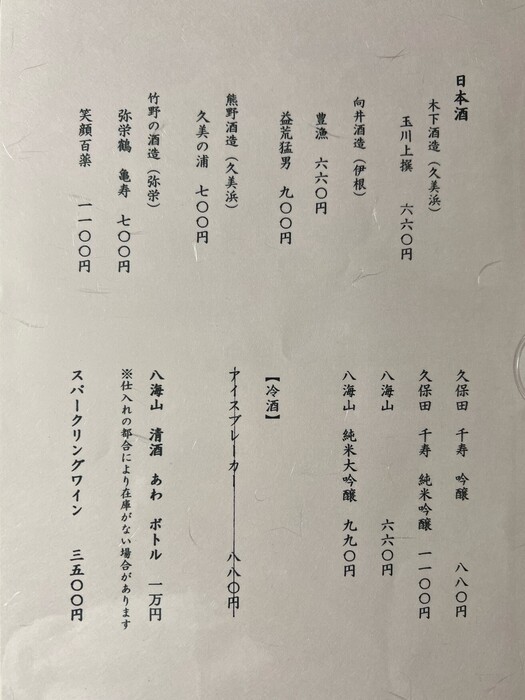 日本酒
木下酒造（久美浜）
玉川上撰 六六〇円
向井酒造（伊根）
豊漁 六六〇円
益荒猛男 九〇〇円
熊野酒造（久美浜）
久美の浦 七〇〇円
竹野の酒造（弥栄）
弥栄鶴 亀寿 七〇〇円
笑顔百薬 一一〇〇円
久保田 千寿 吟醸 八八〇円
久保田 千寿 純米吟醸 一一〇〇円
八海山 六六〇円
八海山 純米大吟醸 九九〇円
【冷酒】
アイスブレーカー 八八〇円
八海山 清酒 あわ ボトル 一万円
※仕入れの都合により在庫がない場合があります
スパークリングワイン 三五〇〇円